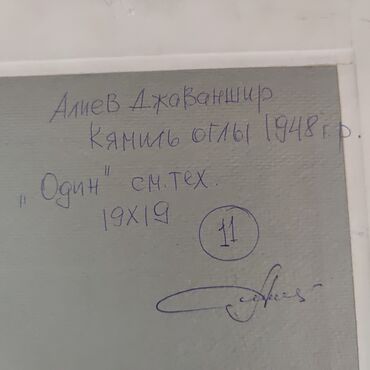 Алиев Джаваншир
Кямиль оглы 1948 г.р.
„Один" см.тех.
19х19
11